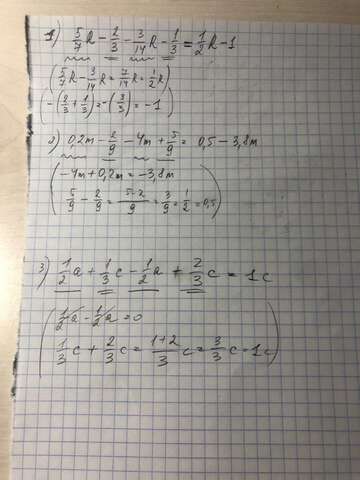 1) 5/7 k - 2/3 - 3/14 k - 1/3 = 1/2 k - 1
(5/7 k - 3/14 k = 7/14 k = 1/2 k)
(-(2/3 + 1/3) = -(3/3) = -1)
2) 0,2m - 2/9 - 4m + 5/9 = 0,5 - 3,8m
(-4m + 0,2m = -3,8m
5/9 - 2/9 = 5-2/9 = 3/9 = 1/2 = 0,5)
3) 1/2 a + 1/3 c - 1/2 a + 2/3 c = 1c
(1/2 a - 1/2 a = 0
1/3 c + 2/3 c = 1+2/3 c = 3/3 c = 1c)